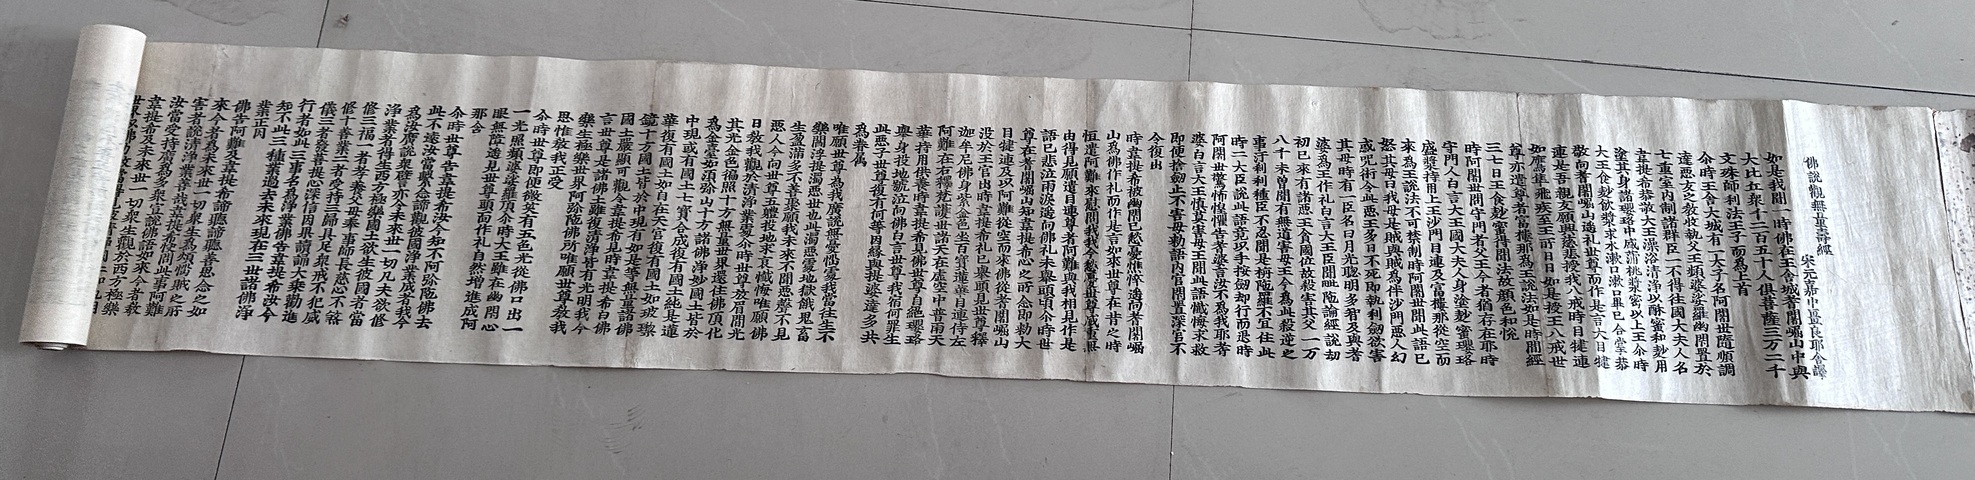 佛說觀無量壽經
宋元嘉中畺良耶舍譯
如是我聞一時佛在王舍城耆闍崛山中與
大比丘衆千二百五十人俱菩薩三万二千
文殊師利法王子而為上首
尒時王舍大城有一太子名阿闍世隨順調
達惡友之教收執父王頻婆娑羅幽閉置於
七重室內制諸群臣一不得往國大夫人名
韋提希恭敬大王澡浴清淨以酥蜜和麨用
塗其身諸瓔珞中盛蒲桃漿密以上王尒時
大王食麨飲漿求水漱口漱口畢已合掌恭
敬向耆闍崛山遙礼世尊而作是言大目揵
連是吾親友願興慈悲授我八戒時目揵連
如鷹隼飛疾至王所日日如是授王八戒世
尊亦遣尊者富樓那為王說法如是時間經
三七日王食麨蜜得聞法故顏色和悅
時阿闍世問守門者父王今者猶存在耶時
守門人白言大王國大夫人身塗麨蜜瓔珞
盛漿持用上王沙門目連及富樓那從空而
來為王說法不可禁制時阿闍世聞此語已
怒其母曰我母是賊與賊為伴沙門惡人幻
惑呪術令此惡王多日不死即執利劒欲害
其母時有一臣名曰月光聰明多智及與耆
婆為王作礼白言大王臣聞毗陀論經說劫
初已來有諸惡王貪國位故殺害其父一万
八千未曾聞有無道害母王今為此殺逆之
事汙刹利種臣不忍聞是栴陀羅不宜住此
時二大臣說此語竟以手按劒却行而退時
阿闍世驚怖惶懼告耆婆言汝不為我耶耆
婆白言大王慎莫害母王聞此語懺悔求救
即便捨劒止不害母勑語內官閉置深宮不
令復出
時韋提希被幽閉已愁憂憔悴遙向耆闍崛
山為佛作礼而作是言如來世尊在昔之時
恒遣阿難來慰問我我今愁憂世尊威重無
由得見願遣目連尊者阿難與我相見作是
語已悲泣雨淚遙向佛礼未舉頭頃尒時世
尊在耆闍崛山知韋提希心之所念即勑大
目揵連及以阿難從空而來佛從耆闍崛山
沒於王宮出時韋提希礼已舉頭見世尊釋
迦牟尼佛身紫金色坐百寶蓮華目連侍左
阿難在右釋梵護世諸天在虛空中普雨天
華持用供養時韋提希見佛世尊自絕瓔珞
舉身投地號泣向佛白言世尊我宿何罪生
此惡子世尊復有何等因緣與提婆達多共
為眷属
唯願世尊為我廣說無憂惱處我當往生不
樂閻浮提濁惡世也此濁惡處地獄餓鬼畜
生盈滿多不善聚願我未來不聞惡聲不見
惡人今向世尊五體投地求哀懺悔唯願佛
日教我觀於清淨業處尒時世尊放眉間光
其光金色遍照十方無量世界還住佛頂化
為金臺如須弥山十方諸佛淨妙國土皆於
中現或有國土七寶合成復有國土純是蓮
華復有國土如自在天宮復有國土如玻瓈
鏡十方國土皆於中現有如是等無量諸佛
國土嚴顯可觀令韋提希見時韋提希白佛
言世尊是諸佛土雖復清淨皆有光明我今
樂生極樂世界阿弥陀佛所唯願世尊教我
思惟教我正受
尒時世尊即便微笑有五色光從佛口出一
一光照頻婆娑羅頂尒時大王雖在幽閉心
眼無障遙見世尊頭面作礼自然增進成阿
那含
尒時世尊告韋提希汝今知不阿弥陀佛去
此不遠汝當繫念諦觀彼國淨業成者我今
為汝廣說衆譬亦令未來世一切凡夫欲修
淨業者得生西方極樂國土欲生彼國者當
修三福一者孝養父母奉事師長慈心不煞
修十善業二者受持三歸具足衆戒不犯威
儀三者發菩提心深信因果讀誦大乘勸進
行者如此三事名為淨業佛告韋提希汝今
知不此三種業過去未來現在三世諸佛淨
業正因
佛告阿難及韋提希諦聽諦聽善思念之如
來今者為未來世一切衆生為煩惱賊之所
害者說清淨業善哉韋提希快問此事阿難
汝當受持廣為多衆宣說佛語如來今者教
韋提希及未來世一切衆生觀於西方極樂